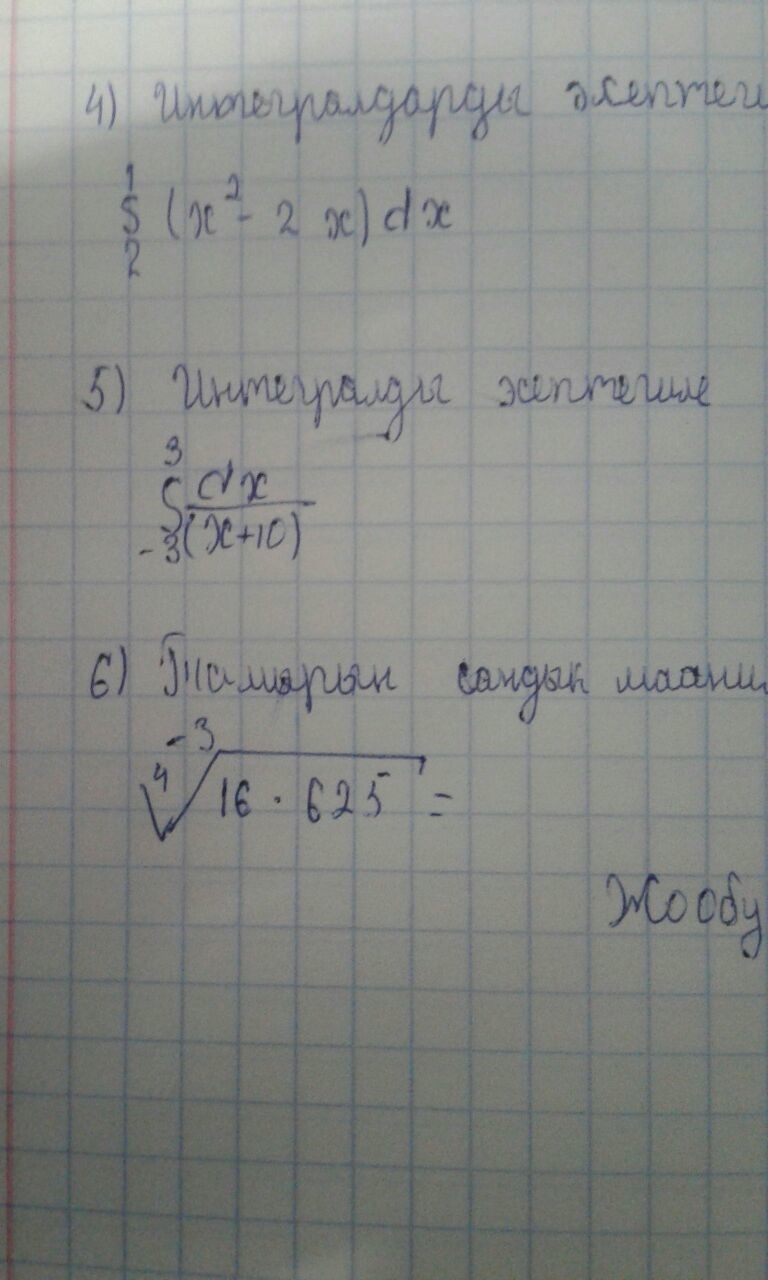 4) Интегралдарды эсептеги
1
∫ (x² - 2 x) dx
2
5) Интегралды эсептегиле
3
∫ dx
-3 (x+10)
6) Тамырын сандык маани
-3
4√16 · 625 =
Жообу